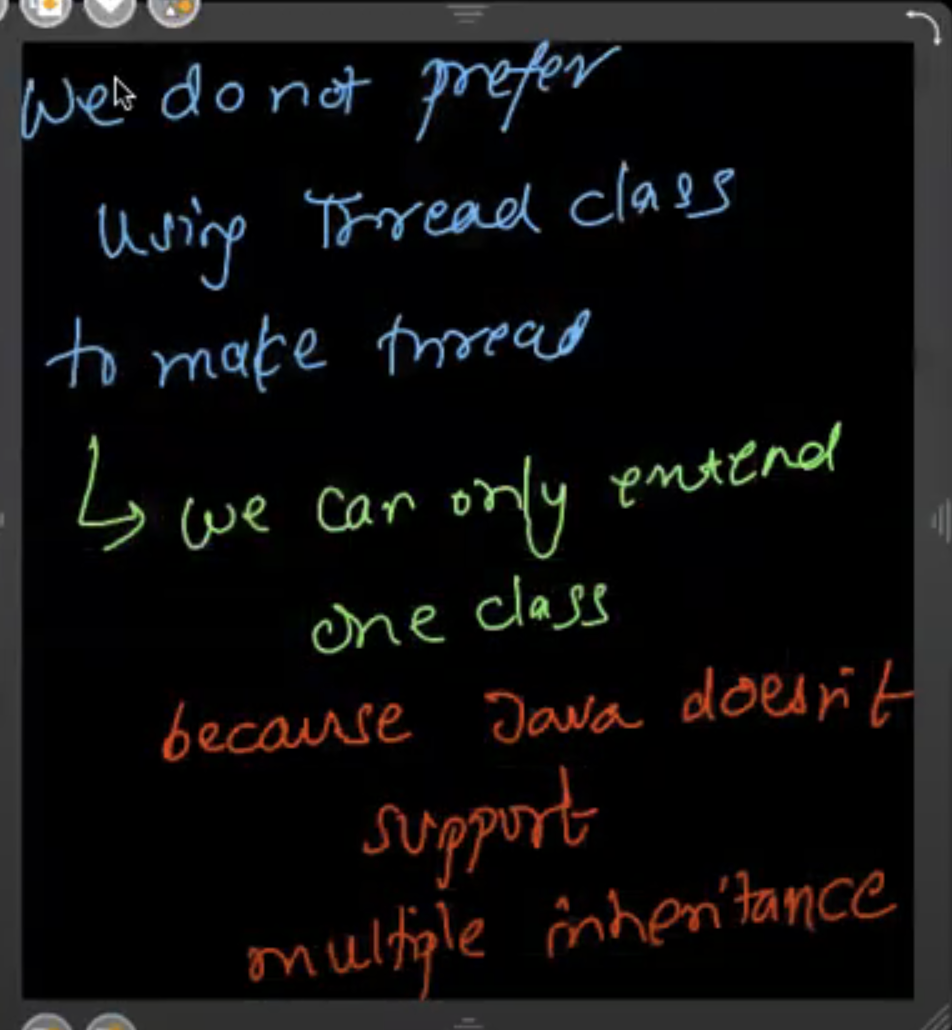 We do not prefer
Using Thread class
to make thread
↳ we can only extend
one class
because Java doesn't
support
multiple inheritance